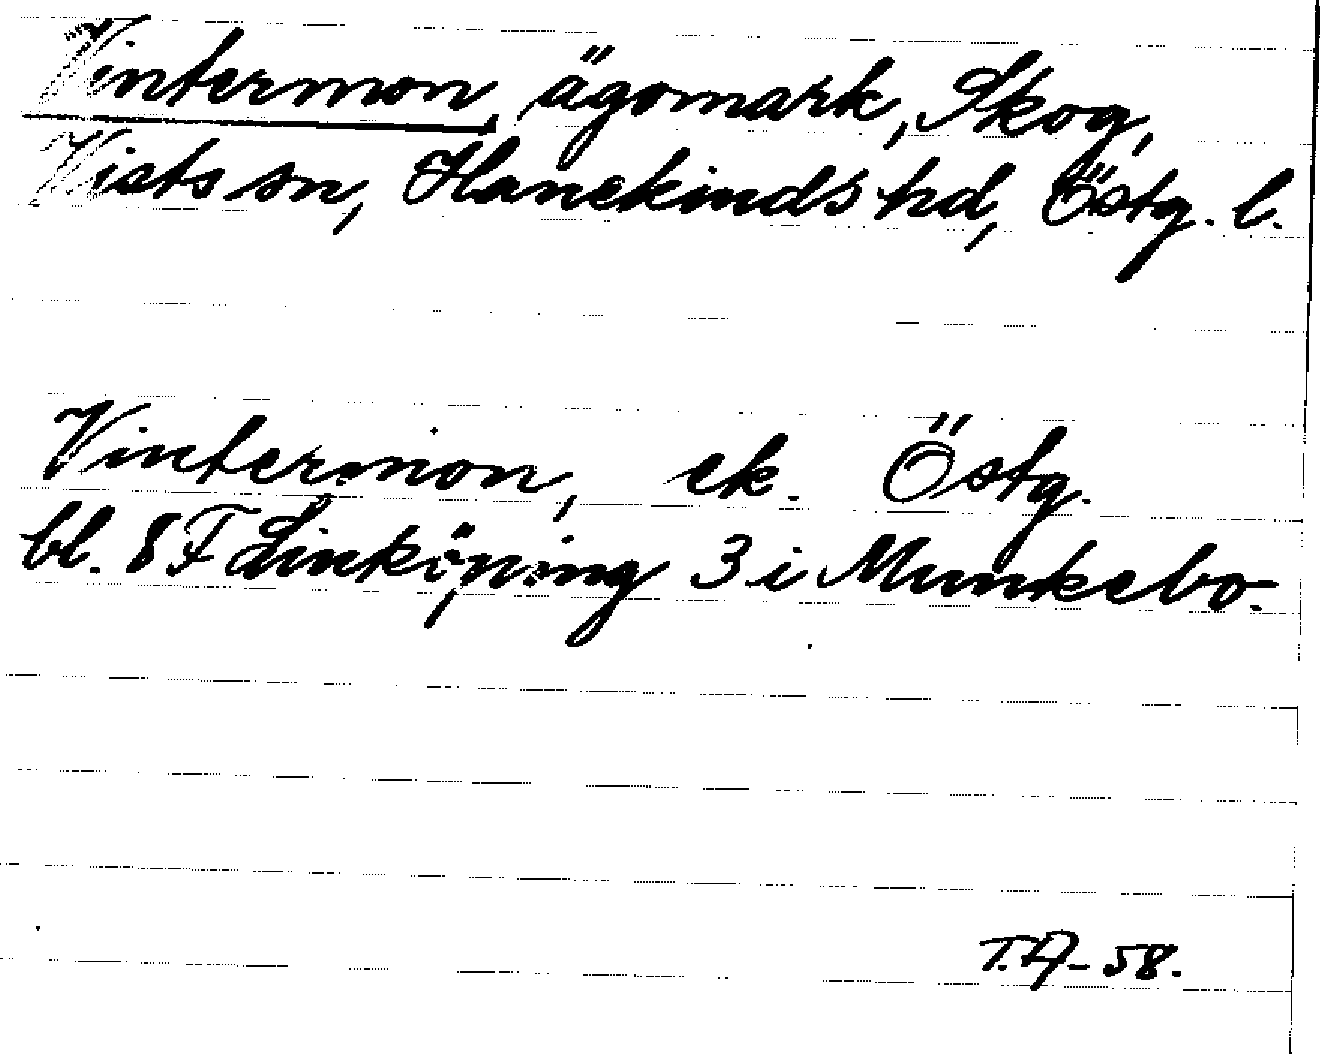 Vintermon, ägomark, Skog,
Vists sn, Hanekinds hd, Östg. l.
Vintermon, ek. Östg.
bl. 8 F Linköping 3 i Munkebo.
T.A-58.